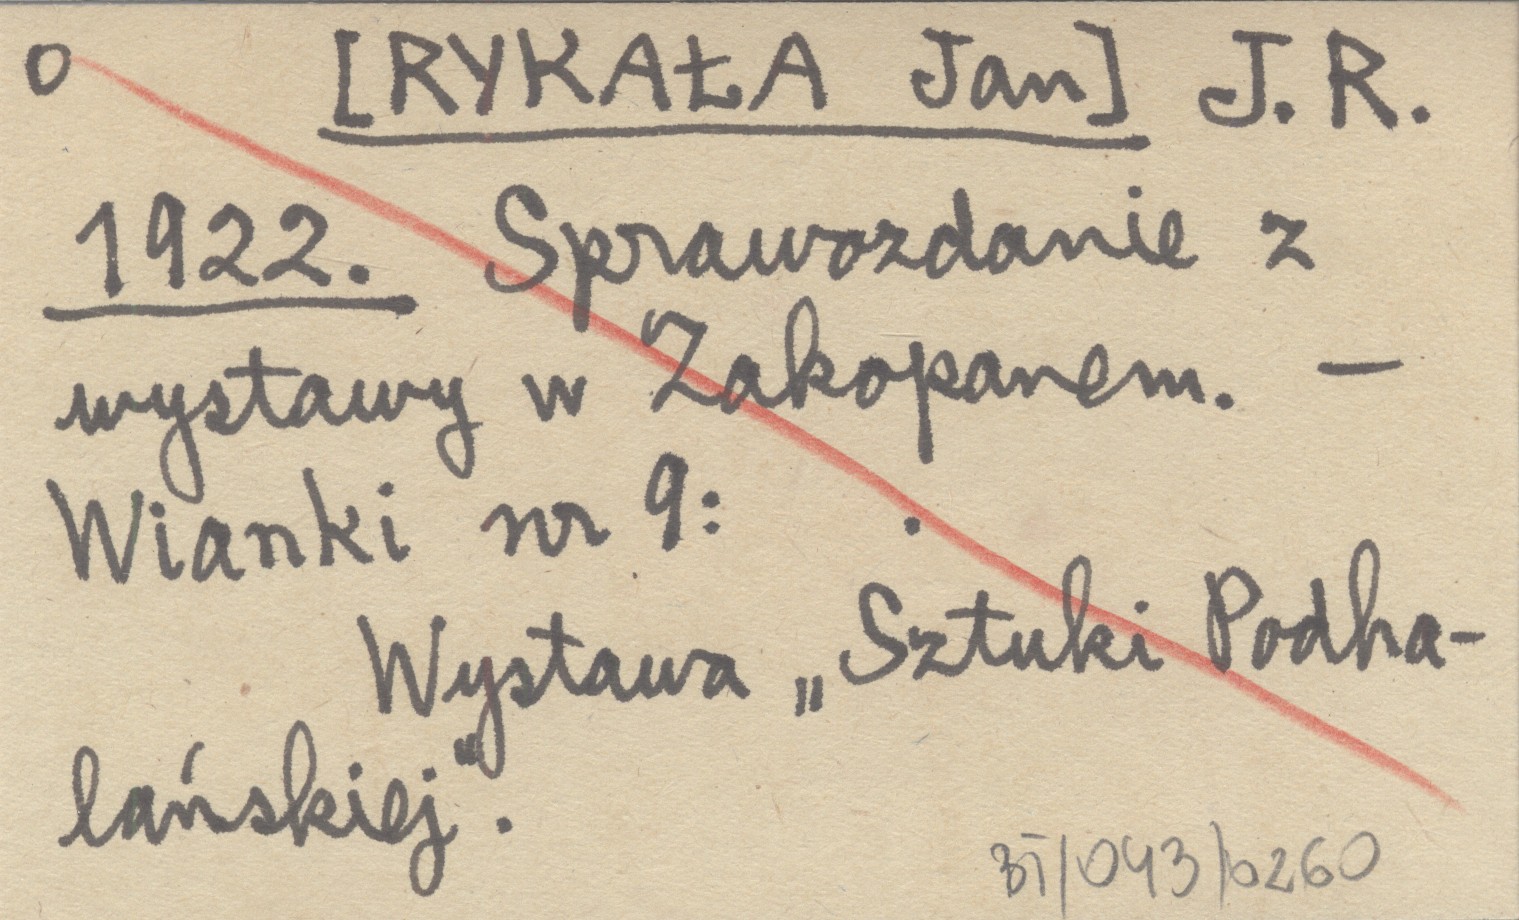 o [RYKAŁA Jan] J. R.
1922. Sprawozdanie z
wystawy w Zakopanem. —
Wianki nr 9: .
Wystawa „Sztuki Podha-
lańskiej".
BT/043/0260